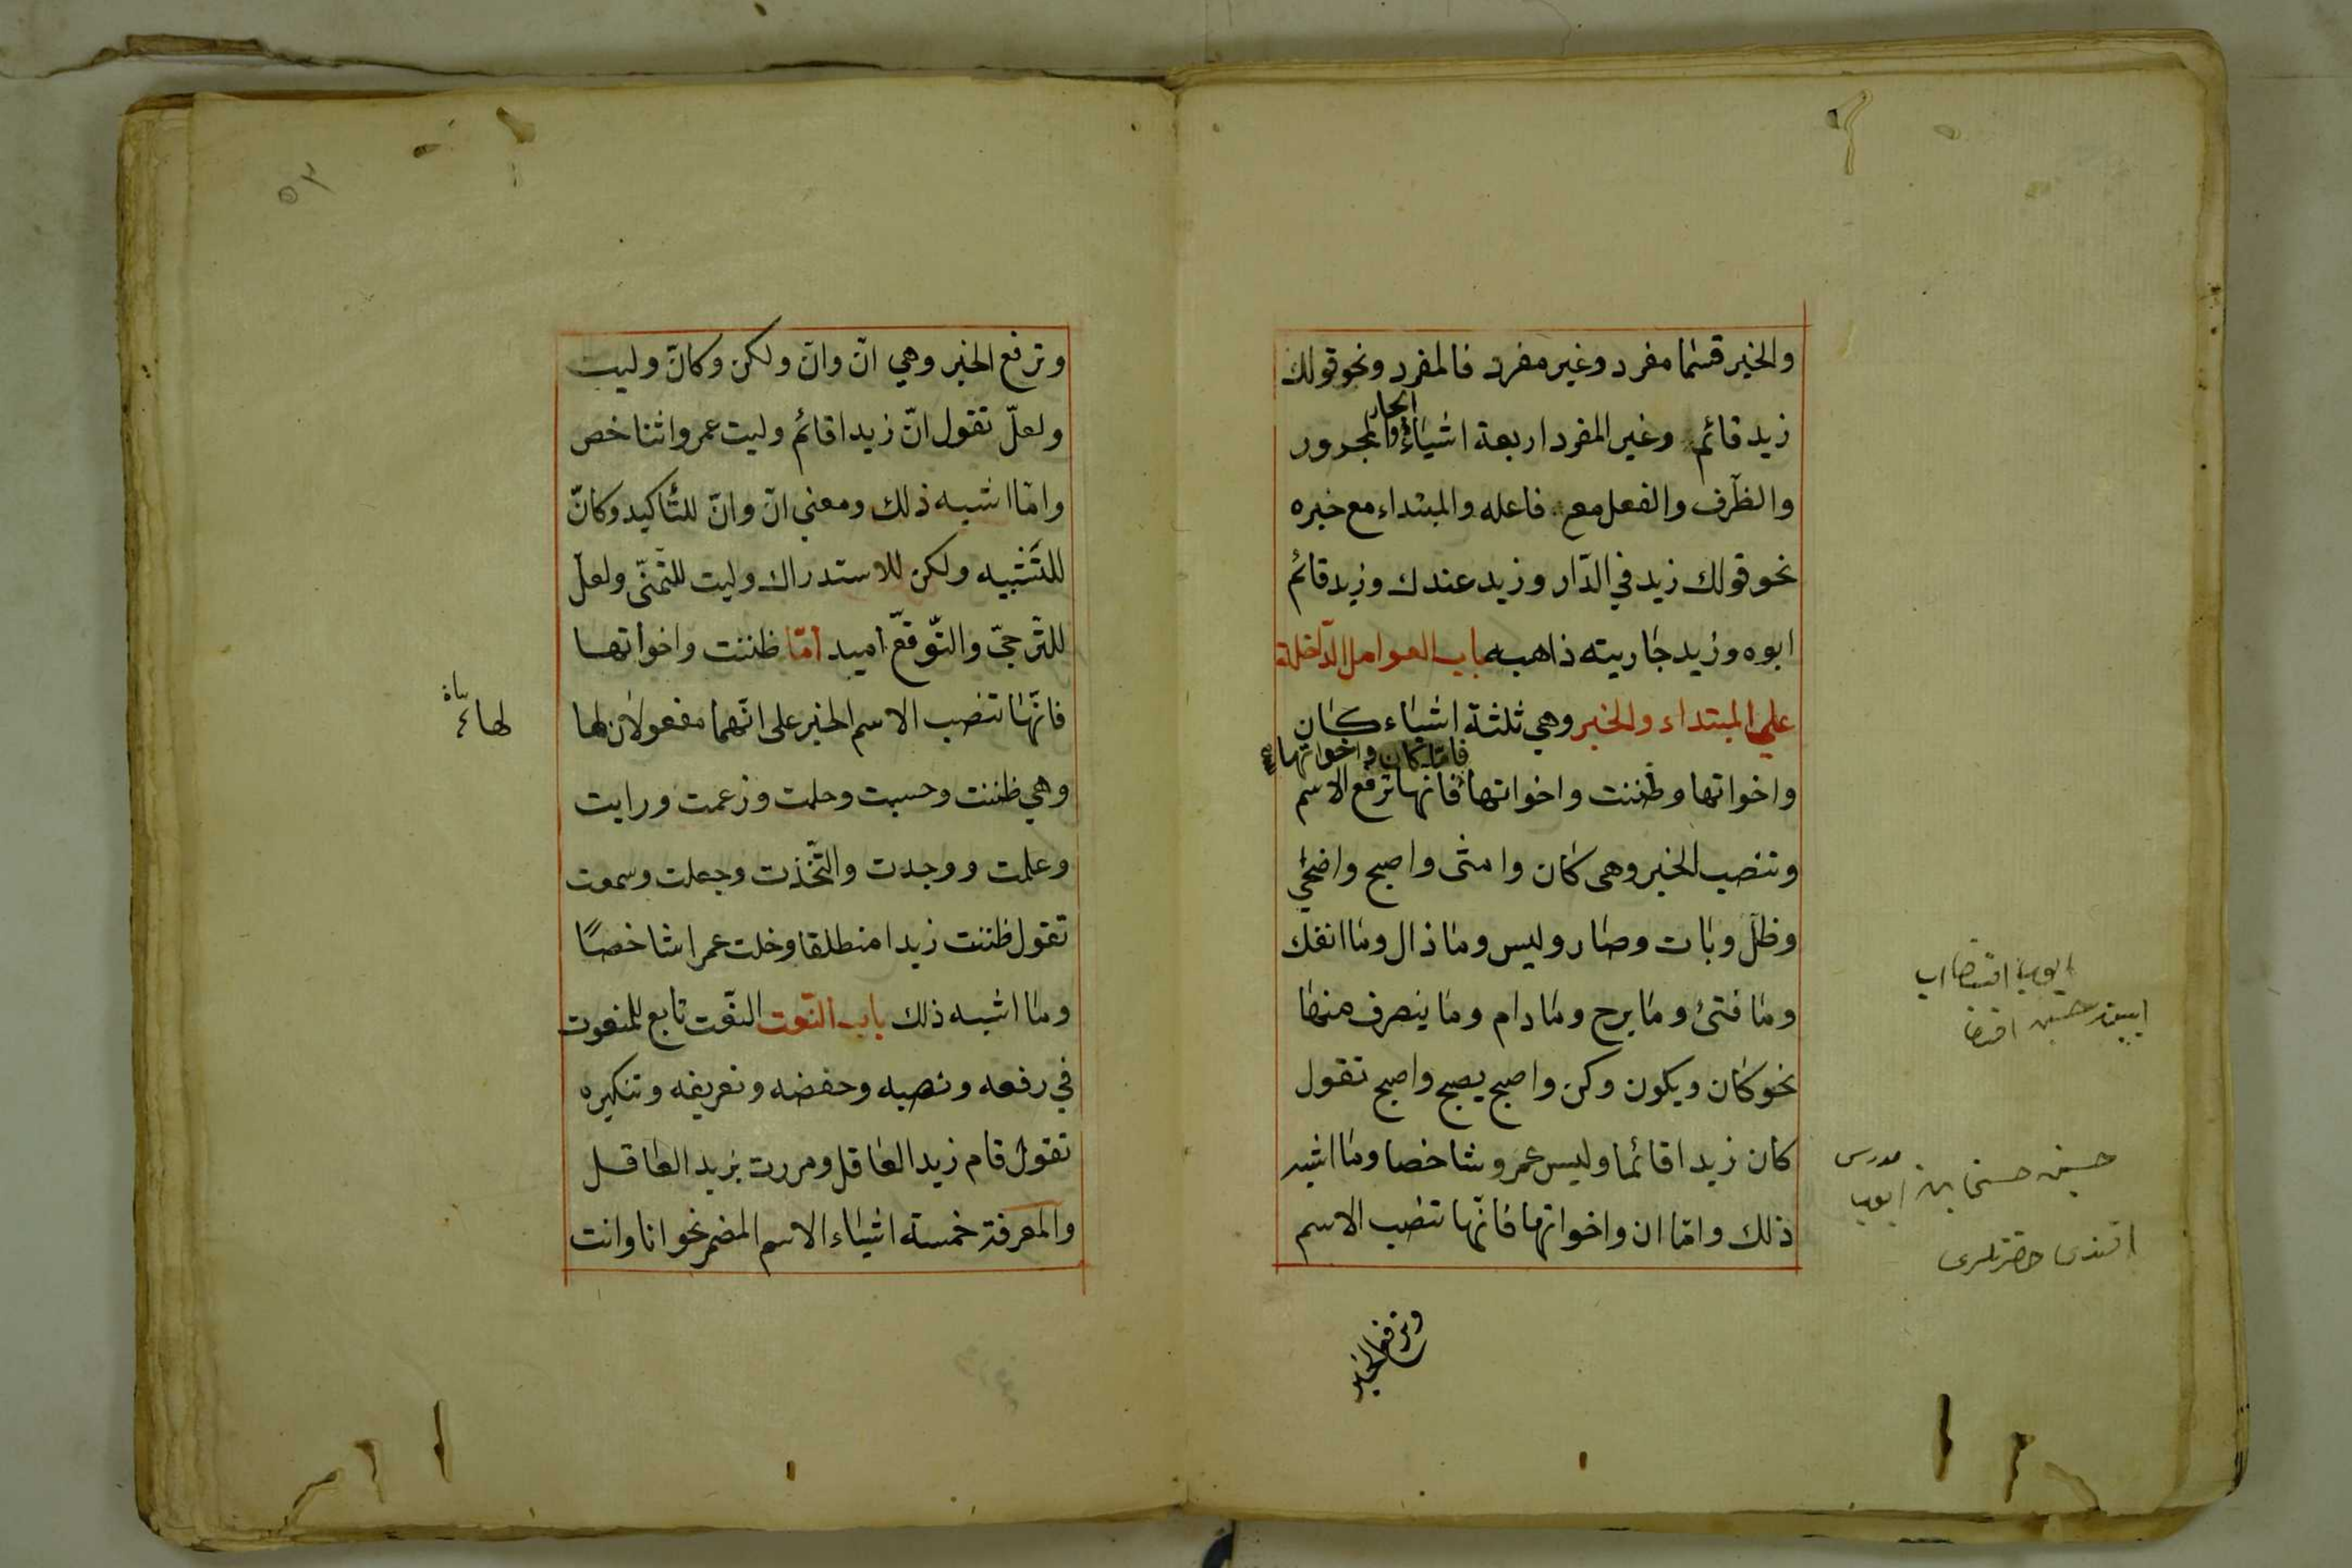 والخبر قسما مفرد وغير مفرد فالمفرد ونحو قولك
زيد قائم وغير المفرد اربعة اشياء الجار والمجرور
والظّرف والفعل مع فاعله والمبتداء مع خبره
نحو قولك زيد في الدّار وزيد عندك وزيد قائم
ابوه وزيد جاريته ذاهبه باب العوامل الدّاخلة
على المبتداء والخبر وهي ثلثة اشياء كان
فامّا كان واخواتها
واخواتها وظننت واخواتها فانها ترفع الاسم
وتنصب الخبر وهى كان وامشى واصبح واضحى
وظلّ وبات وصار وليس وما ذال وما انفك
وما فتئ وما برح وما دام وما ينصرف منها
نحو كان ويكون وكن واصبح يصبح واصبح تقول
كان زيد اقائما وليس عمرو شاخصا وما اشبه
ذلك وامّا ان واخواتها فانّها تنصب الاسم
وترفع الخبر
حسين حسنى بن ايوب
مدرس
افندى حضرتلرى
٥٣
وترفع الخبر وهي انّ وانّ ولكن وكانّ وليت
ولعلّ تقول انّ زيدا قائم وليت عمروا شاخص
وامّا اشبه ذلك ومعنى انّ وانّ للتّاكيد وكانّ
للتّشبيه ولكن للاستدراك وليت للتّمنّى ولعلّ
للتّرجيّ والتّوقّع اميد امّا ظننت واخواتها
فانّها تنصب الاسم الخبر على انّهما مفعولان لها
لها
وهي ظننت وحسبت وحلت وزعمت ورايت
وعلمت ووجدت والتّخذت وجعلت وسموت
تقول ظننت زيدا منطلقا وخلت عمرا شاخصًا
وما اشبه ذلك باب النّعت النّعت تابع للمنعوت
في رفعه ونصبه وحفضه وتعريفه وتنكيره
تقول قام زيد العاقل ومررت بزيد العاقل
والمعرفة خمسة اشياء الاسم المضمر نحو انا وانت